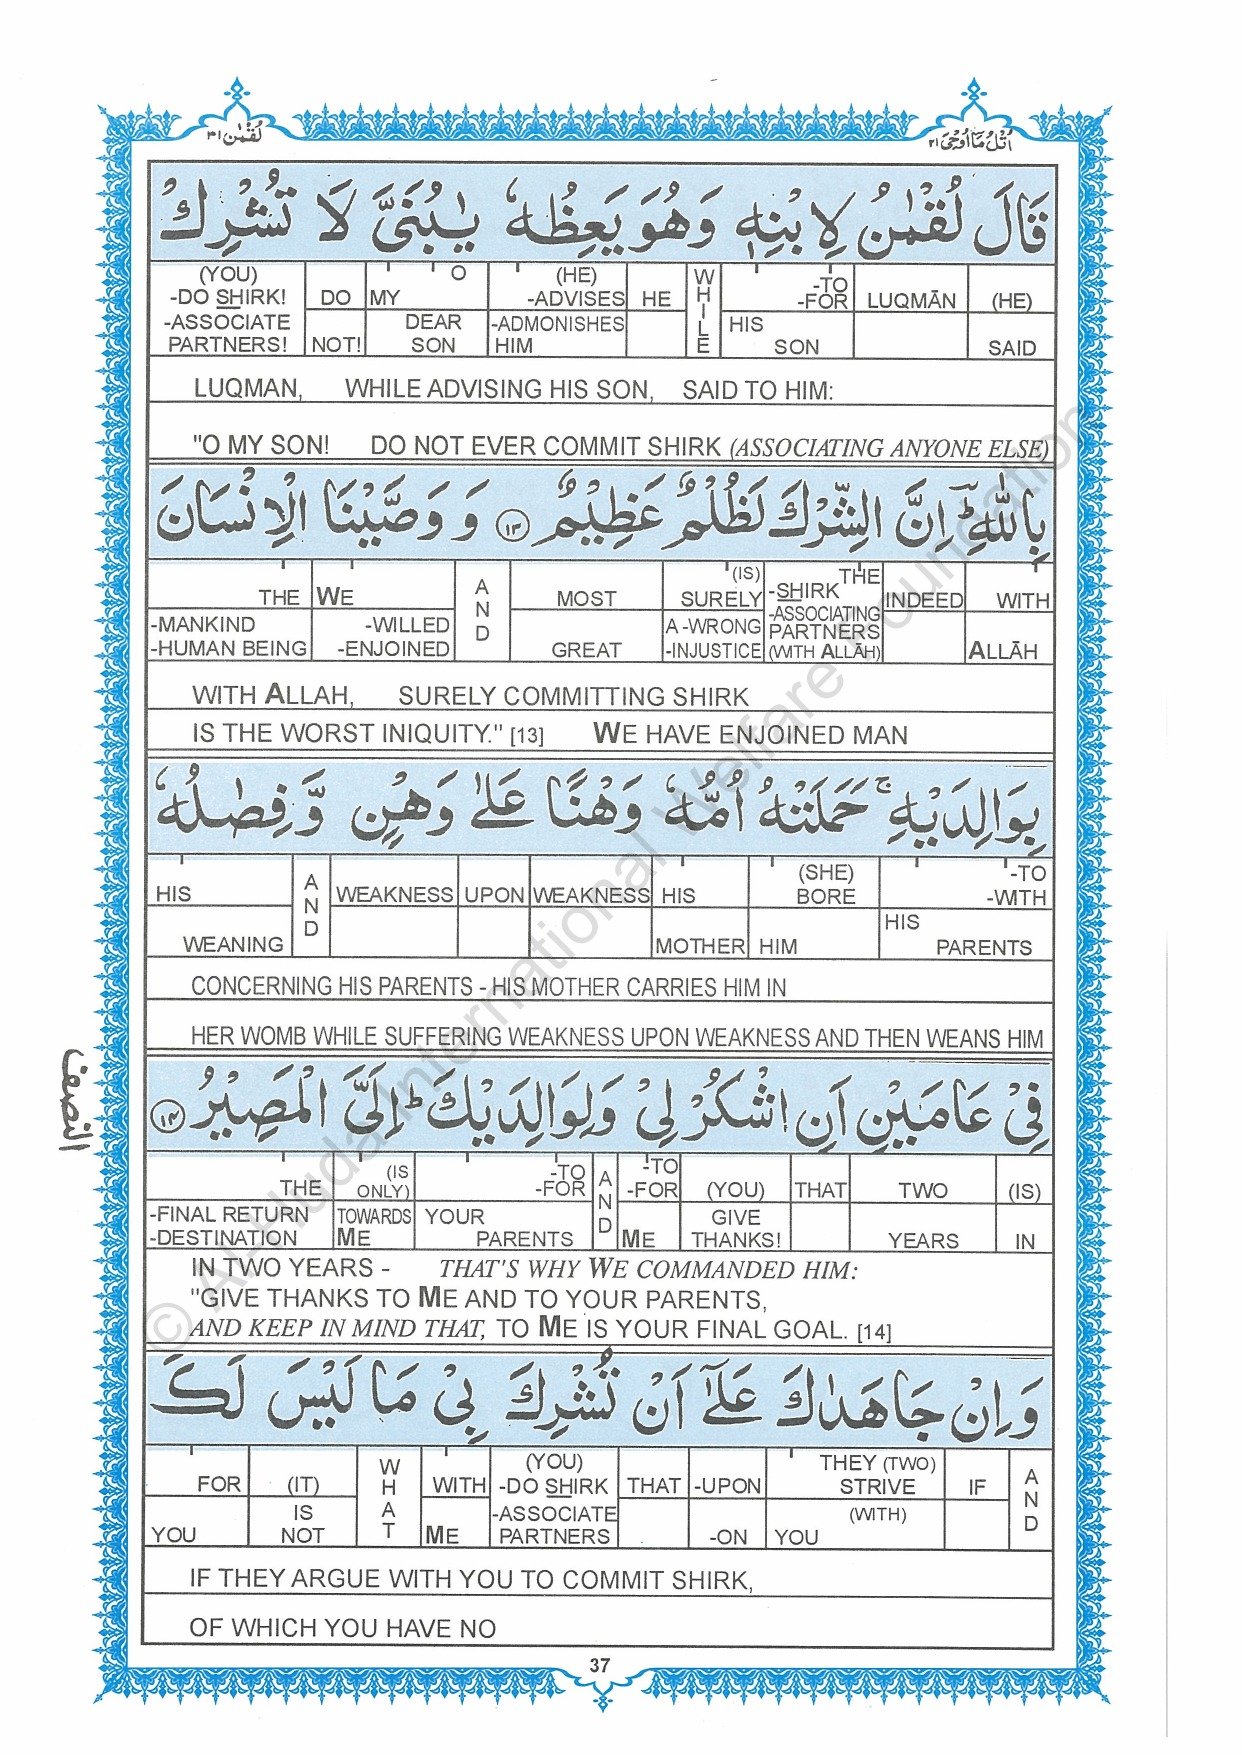 لُقْمٰن ٣١
اُتْلُ مَآ اُوْحِیَ ٢١
قَالَ لُقْمٰنُ لِابْنِهٖ وَهُوَ يَعِظُهٗ يٰبُنَىَّ لَا تُشْرِكْ
(YOU) -DO SHIRK! -ASSOCIATE PARTNERS! DO NOT! O MY DEAR SON (HE) -ADVISES -ADMONISHES HIM HE WHILE -TO -FOR HIS SON LUQMĀN (HE) SAID
LUQMAN, WHILE ADVISING HIS SON, SAID TO HIM:
"O MY SON! DO NOT EVER COMMIT SHIRK (ASSOCIATING ANYONE ELSE)
بِاللّٰهِ ؕ اِنَّ الشِّرْكَ لَظُلْمٌ عَظِيْمٌ ١٣ وَ وَصَّيْنَا الْاِنْسَانَ
THE -MANKIND -HUMAN BEING WE -WILLED -ENJOINED AND MOST GREAT (IS) SURELY A -WRONG -INJUSTICE THE -SHIRK -ASSOCIATING PARTNERS (WITH ALLĀH) INDEED WITH ALLĀH
WITH ALLAH, SURELY COMMITTING SHIRK
IS THE WORST INIQUITY." [13] WE HAVE ENJOINED MAN
بِوَالِدَيْهِ ۚ حَمَلَتْهُ اُمُّهٗ وَهْنًا عَلٰى وَهْنٍ وَّ فِصٰلُهٗ
HIS WEANING AND WEAKNESS UPON WEAKNESS HIS MOTHER (SHE) BORE HIM -TO -WITH HIS PARENTS
CONCERNING HIS PARENTS - HIS MOTHER CARRIES HIM IN
HER WOMB WHILE SUFFERING WEAKNESS UPON WEAKNESS AND THEN WEANS HIM
النصف
فِىْ عَامَيْنِ اَنِ اشْكُرْ لِىْ وَلِوَالِدَيْكَ ؕ اِلَىَّ الْمَصِيْرُ ١٤
THE -FINAL RETURN -DESTINATION (IS ONLY) TOWARDS ME -TO -FOR YOUR PARENTS AND -TO -FOR ME (YOU) GIVE THANKS! THAT TWO YEARS (IS) IN
IN TWO YEARS - THAT'S WHY WE COMMANDED HIM:
"GIVE THANKS TO ME AND TO YOUR PARENTS,
AND KEEP IN MIND THAT, TO ME IS YOUR FINAL GOAL. [14]
وَاِنْ جَاهَدٰكَ عَلٰٓى اَنْ تُشْرِكَ بِىْ مَا لَيْسَ لَكَ
FOR YOU (IT) IS NOT WHAT WITH ME (YOU) -DO SHIRK -ASSOCIATE PARTNERS THAT -UPON -ON THEY (TWO) STRIVE (WITH) YOU IF AND
IF THEY ARGUE WITH YOU TO COMMIT SHIRK,
OF WHICH YOU HAVE NO
37
© Al-Huda International Welfare Foundation